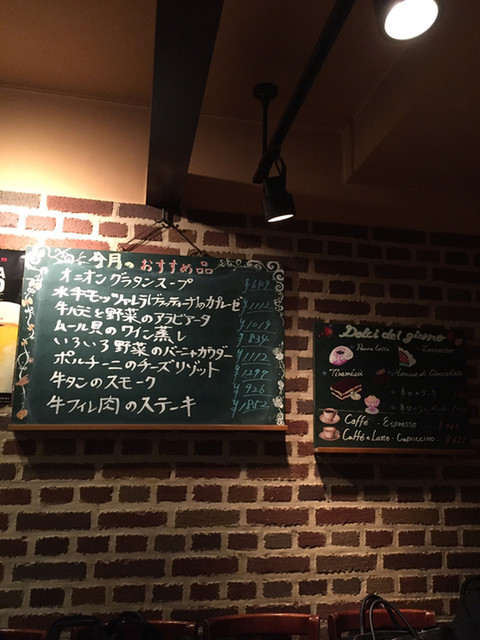 今月のおすすめ品
オニオングラタンスープ ¥649
水牛モッツァレラ(ブッファーラ)のカプレーゼ
牛ハラミと野菜のアラビアータ ¥1019
ムール貝のワイン蒸し ¥834
いろいろ野菜のバーニャカウダー ¥1112
ポルチーニのチーズリゾット ¥1297
牛タンのスモーク ¥926
牛フィレ肉のステーキ ¥1852
Dolci del giorno
Panna Cotta
Tiramisù
Caffé・Espresso
Caffé・Latte・Cappuccino